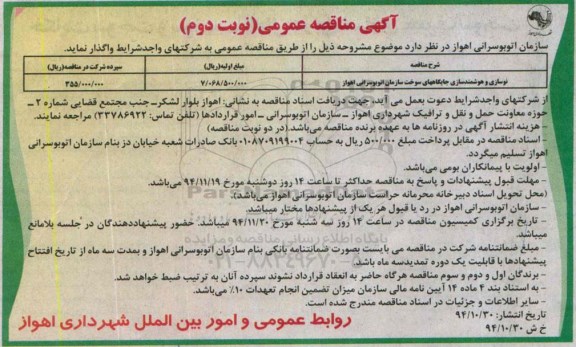 آگهی مناقصه عمومی(نوبت دوم)
سازمان اتوبوسرانی اهواز در نظر دارد موضوع مشروحه ذیل را از طریق مناقصه عمومی به شرکتهای واجدشرایط واگذار نماید.
شرح مناقصه
مبلغ اولیه(ریال)
سپرده شرکت در مناقصه(ریال)
نوسازی و هوشمندسازی جایگاههای سوخت سازمان اتوبوسرانی اهواز
۷/۰۶۸/۵۰۰/۰۰۰
۳۵۵/۰۰۰/۰۰۰
از شرکتهای واجدشرایط دعوت بعمل می آید، جهت دریافت اسناد مناقصه به نشانی: اهواز بلوار لشکر_ جنب مجتمع قضایی شماره ۲ _
حوزه معاونت حمل و نقل و ترافیک شهرداری اهواز _ سازمان اتوبوسرانی _ امور قراردادها (تلفن تماس: ۳۳۷۸۶۹۲۲) مراجعه نمایند.
– هزینه انتشار آگهی در روزنامه ها به عهده برنده مناقصه می‌باشد.(در دو نوبت مناقصه)
– اسناد مناقصه در مقابل پرداخت مبلغ ۵۰۰/۰۰۰ ریال به حساب ۰۱۰۸۷۰۹۱۹۹۰۰۴ بانک صادرات شعبه خیابان دز بنام سازمان اتوبوسرانی
اهواز تسلیم میگردد.
– اولویت با پیمانکاران بومی می‌باشد.
– مهلت قبول پیشنهادات و پاسخ به مناقصه حداکثر تا ساعت ۱۴ روز دوشنبه مورخ ۹۴/۱۱/۱۹ می‌باشد.
(محل تحویل اسناد دبیرخانه محرمانه حراست سازمان اتوبوسرانی اهواز می‌باشد).
– سازمان اتوبوسرانی اهواز در رد یا قبول هر یک از پیشنهادها مختار میباشد.
– تاریخ برگزاری کمیسیون مناقصه در ساعت ۱۴ روز سه شنبه مورخ ۹۴/۱۱/۲۰ میباشد. حضور پیشنهاددهندگان در جلسه بلامانع
میباشد.
– مبلغ ضمانتنامه شرکت در مناقصه می بایست بصورت ضمانتنامه بانکی بنام سازمان اتوبوسرانی اهواز و بمدت سه ماه از تاریخ افتتاح
پیشنهادها با قابلیت یک دوره تمدیدسه ماه باشد.
– برندگان اول و دوم و سوم مناقصه هرگاه حاضر به انعقاد قرارداد نشوند سپرده آنان به ترتیب ضبط خواهد شد.
– به استناد بند ۴ ماده ۱۴ آیین نامه مالی سازمان میزان تضمین انجام تعهدات ۱۰٪ می‌باشد.
– سایر اطلاعات و جزئیات در اسناد مناقصه مندرج شده است.
تاریخ انتشار: ۹۴/۱۰/۳۰
خ ش ۹۴/۱۰/۳۰
روابط عمومی و امور بین الملل شهرداری اهواز